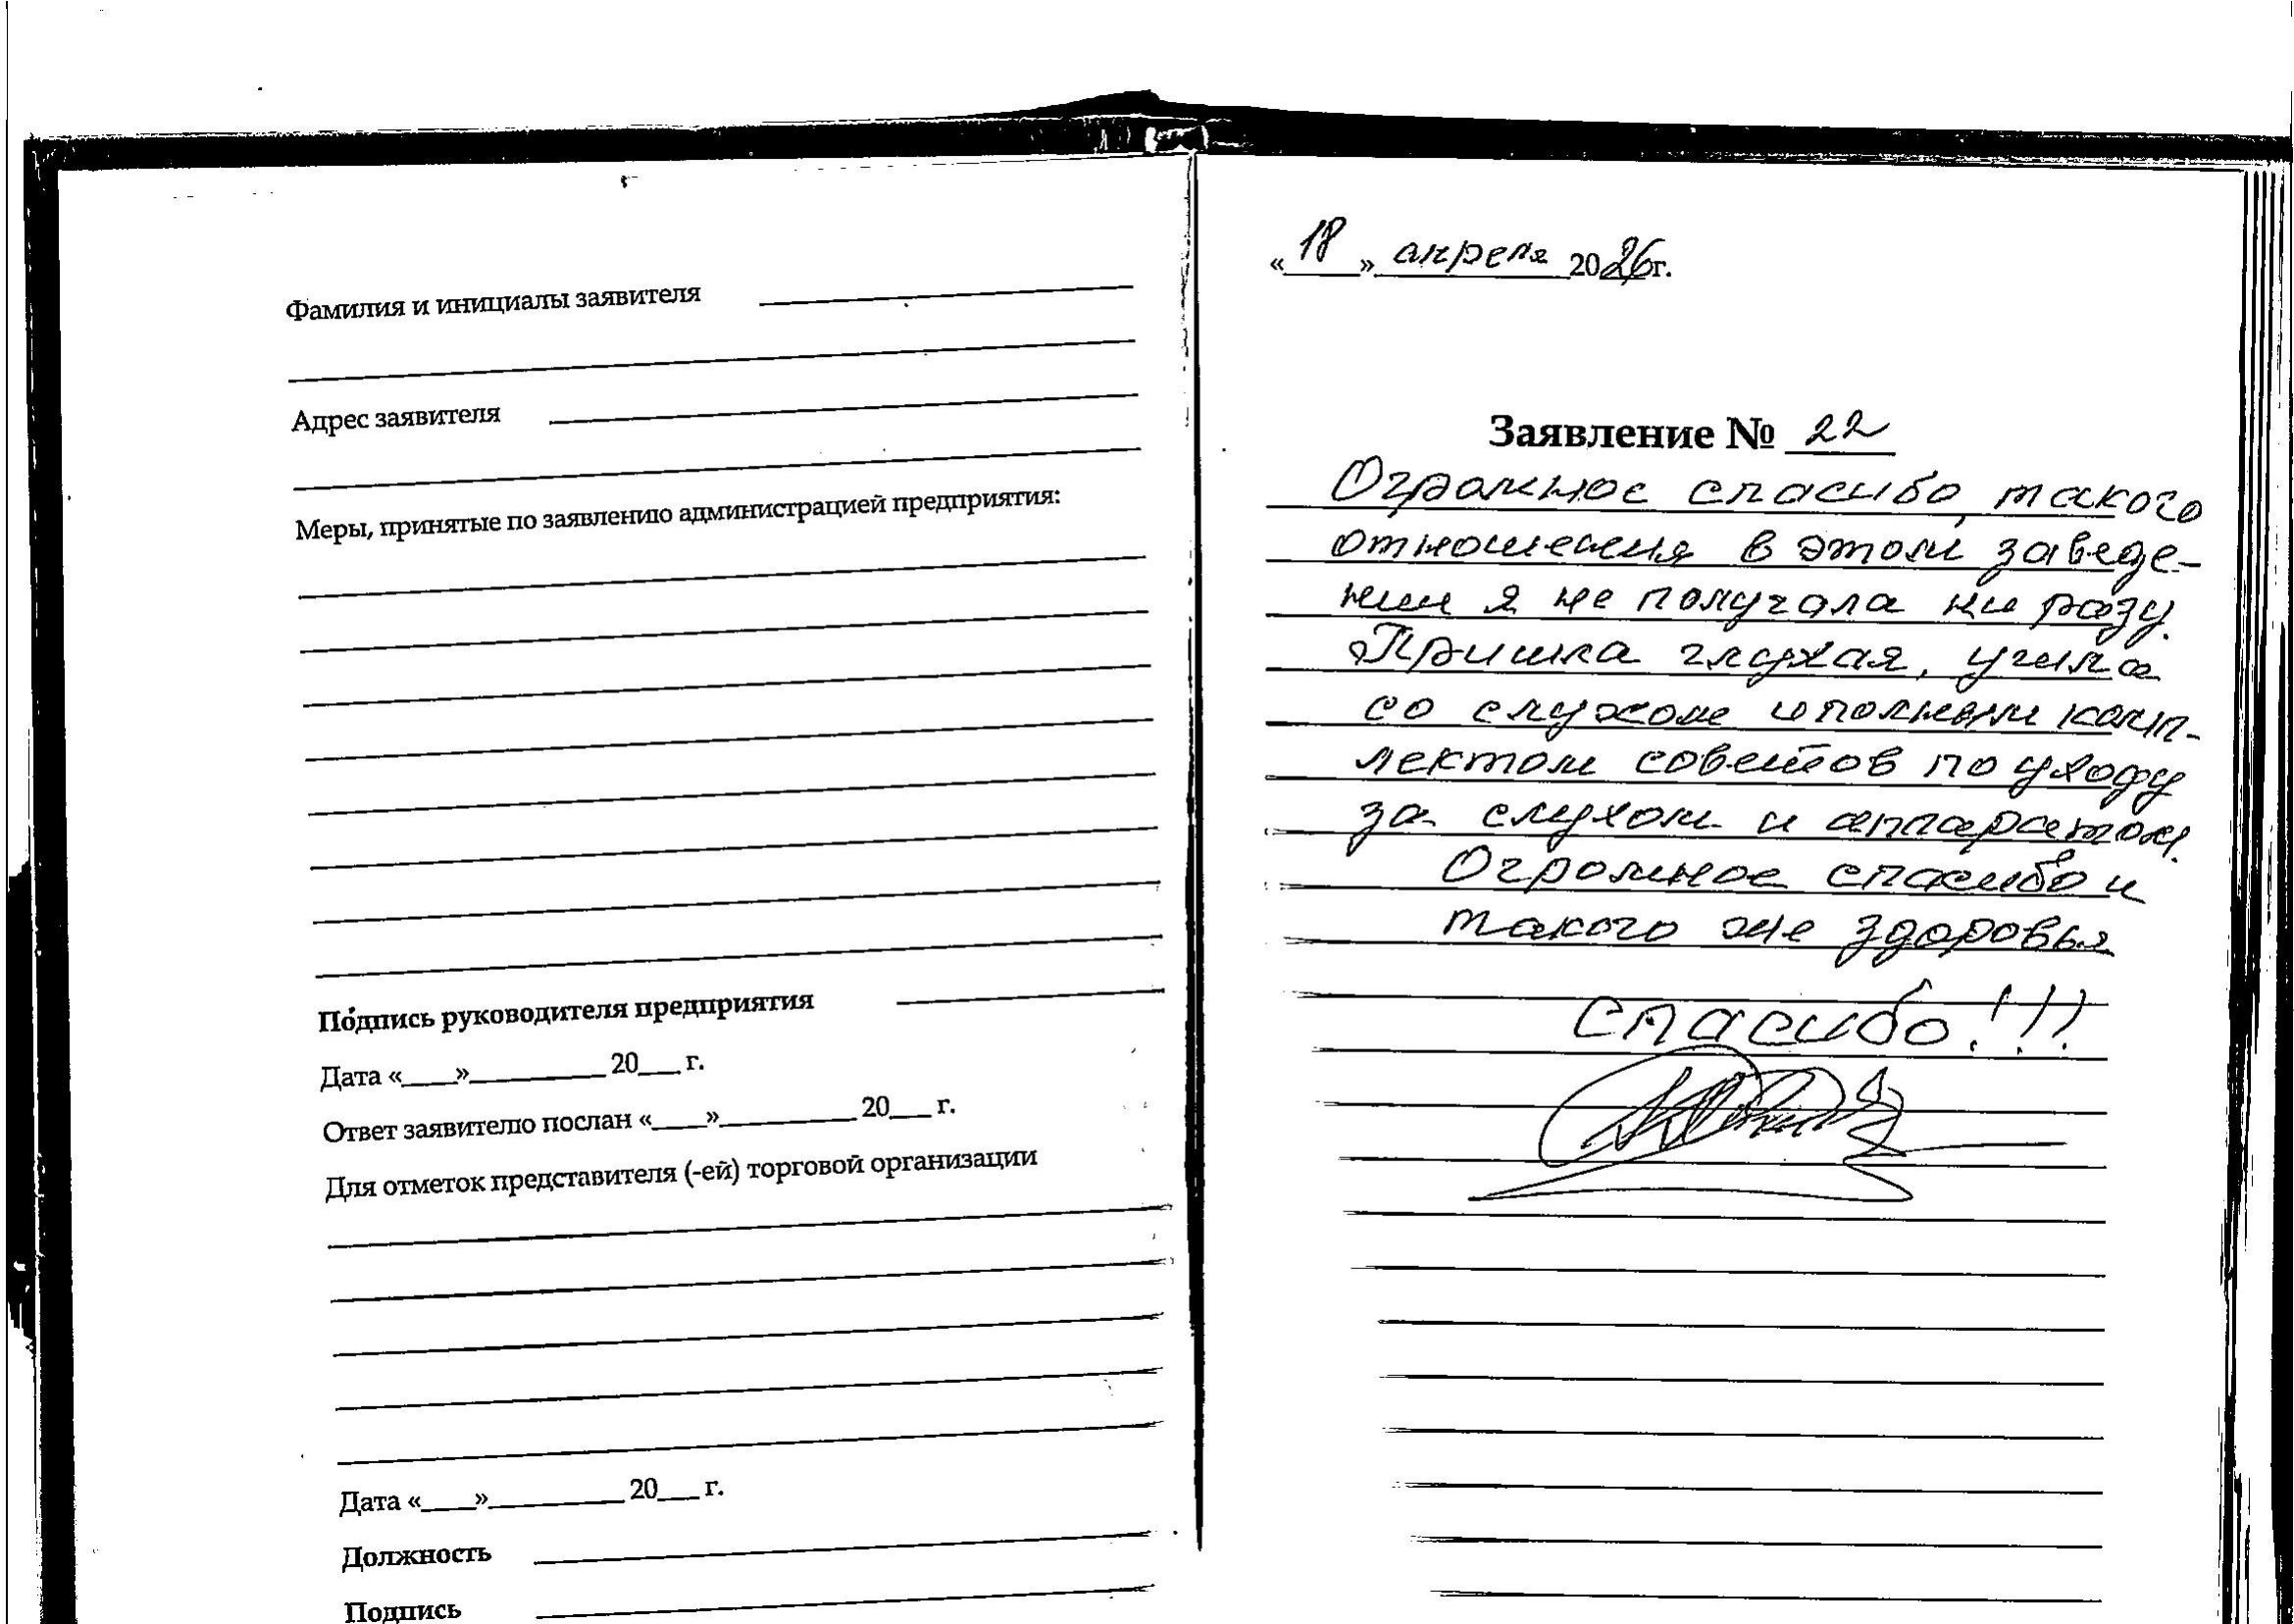 Фамилия и инициалы заявителя
Адрес заявителя
Меры, принятые по заявлению администрацией предприятия:
Подпись руководителя предприятия
Дата «____»__________ 20___ г.
Ответ заявителю послан «____»__________ 20___ г.
Для отметок представителя (-ей) торговой организации
Дата «____»__________ 20___ г.
Должность
Подпись
«18» апреля 2026г.
Заявление № 22
Огромное спасибо, такого
отношения в этом заведе-
нии я не получала ни разу.
Пришла глухая, ушла
со слухом и полным комп-
лектом советов по уходу
за слухом и аппаратом.
Огромное спасибо и
такого же здоровья
спасибо!!!